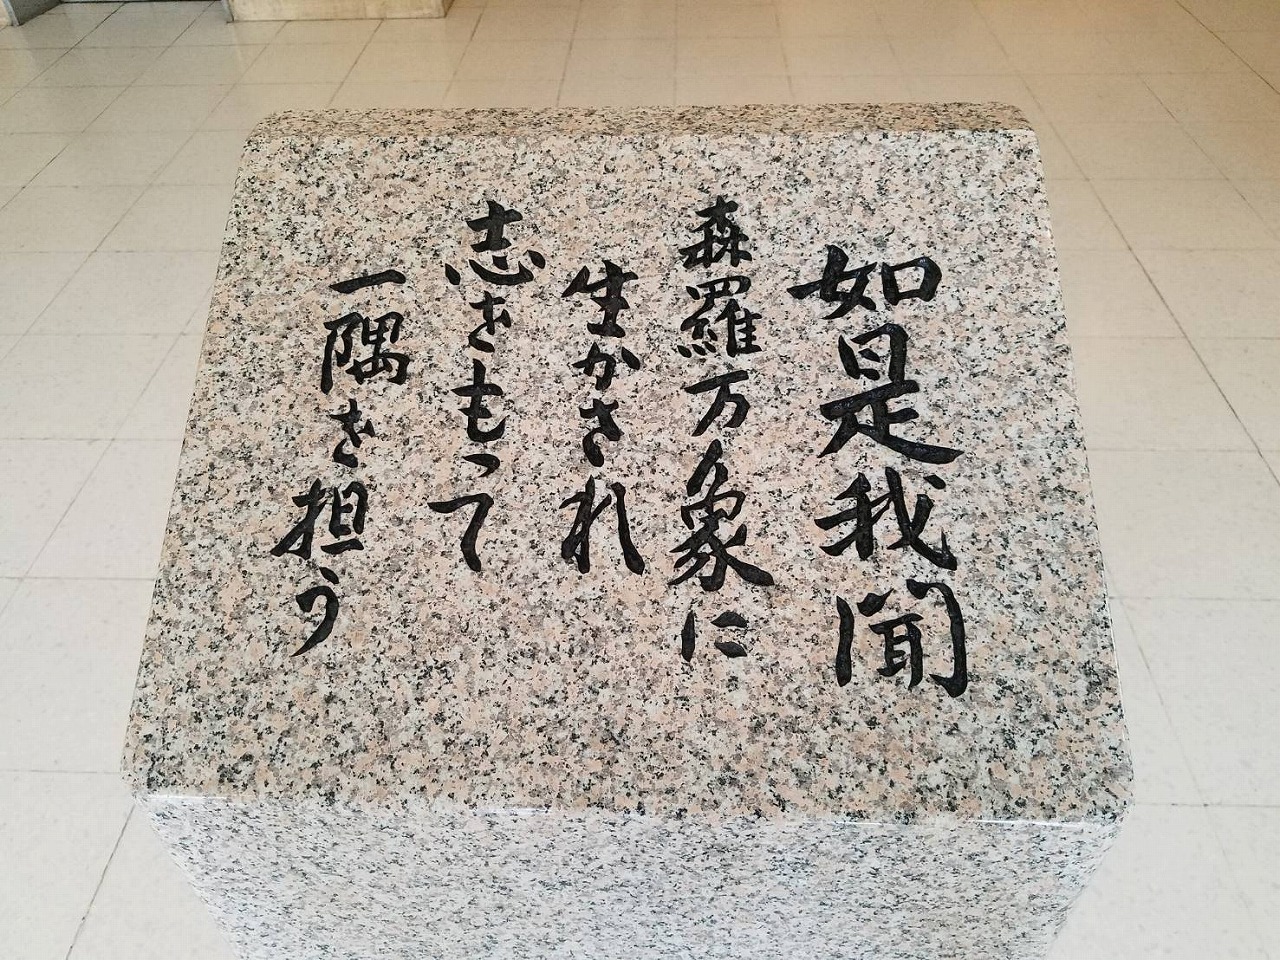 如是我聞
森羅万象に
生かされ
志をもって
一隅を担う